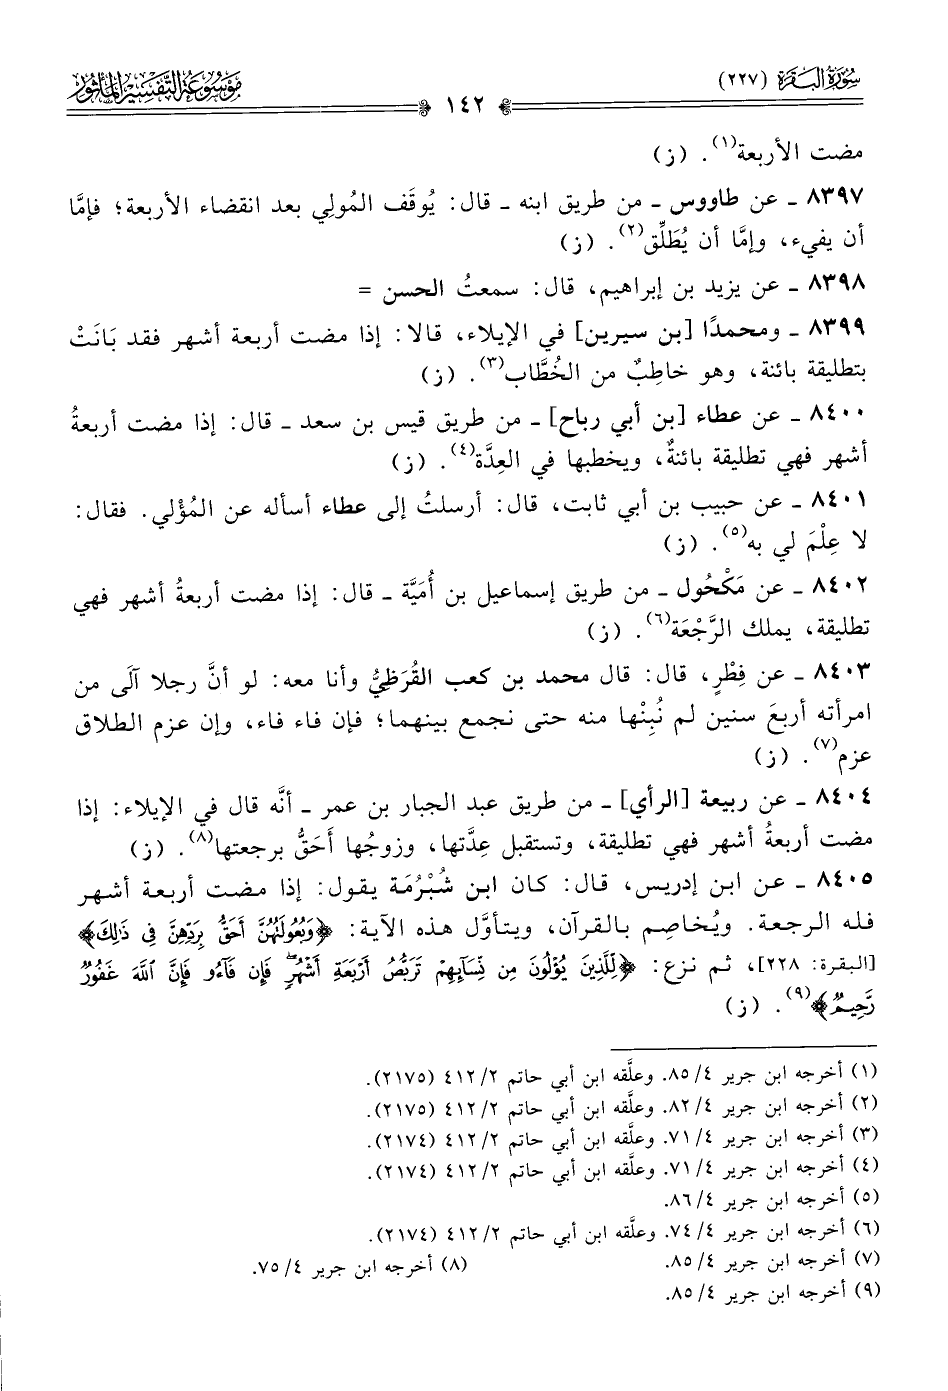 سُورَةُ البَقَرَة (٢٢٧)
١٤٢
مَوْسُوعَة التَّفْسِير المَأْثُور
مضت الأربعة(١). (ز)
٨٣٩٧ ـ عن طاووس ـ من طريق ابنه ـ قال: يُوقَف المُولِي بعد انقضاء الأربعة؛ فإمَّا
أن يفيء، وإمَّا أن يُطَلِّق(٢). (ز)
٨٣٩٨ ـ عن يزيد بن إبراهيم، قال: سمعتُ الحسن =
٨٣٩٩ ـ ومحمدًا [بن سيرين] في الإيلاء، قالا: إذا مضت أربعة أشهر فقد بَانَتْ
بتطليقة بائنة، وهو خاطِبٌ من الخُطَّاب(٣). (ز)
٨٤٠٠ ـ عن عطاء [بن أبي رباح] ـ من طريق قيس بن سعد ـ قال: إذا مضت أربعةُ
أشهر فهي تطليقة بائنةٌ، ويخطبها في العِدَّة(٤). (ز)
٨٤٠١ ـ عن حبيب بن أبي ثابت، قال: أرسلتُ إلى عطاء أسأله عن المُؤْلي. فقال:
لا عِلْمَ لي به(٥). (ز)
٨٤٠٢ ـ عن مَكْحُول ـ من طريق إسماعيل بن أُمَيَّة ـ قال: إذا مضت أربعةُ أشهر فهي
تطليقة، يملك الرَّجْعَة(٦). (ز)
٨٤٠٣ ـ عن فِطْرٍ، قال: قال محمد بن كعب القُرَظِيُّ وأنا معه: لو أنَّ رجلا آلَى من
امرأته أربعَ سنين لم نُبِنْها منه حتى نجمع بينهما؛ فإن فاء فاء، وإن عزم الطلاق
عزم(٧). (ز)
٨٤٠٤ ـ عن ربيعة [الرأي] ـ من طريق عبد الجبار بن عمر ـ أنَّه قال في الإيلاء: إذا
مضت أربعةُ أشهر فهي تطليقة، وتستقبل عِدَّتها، وزوجُها أَحَقُّ برجعتها(٨). (ز)
٨٤٠٥ ـ عن ابن إدريس، قال: كان ابن شُبْرُمَة يقول: إذا مضت أربعة أشهر
فله الرجعة. ويُخاصِم بالقرآن، ويتأوَّل هذه الآية: ﴿وَبُعُولَتُهُنَّ أَحَقُّ بِرَدِّهِنَّ فِى ذَٰلِكَ﴾
[البقرة: ٢٢٨]، ثم نزع: ﴿لِّلَّذِينَ يُؤْلُونَ مِن نِّسَآئِهِمْ تَرَبُّصُ أَرْبَعَةِ أَشْهُرٍ فَإِن فَآءُو فَإِنَّ ٱللَّهَ غَفُورٌ
رَّحِيمٌ﴾(٩). (ز)
(١) أخرجه ابن جرير ٤/ ٨٥. وعلَّقه ابن أبي حاتم ٢/ ٤١٢ (٢١٧٥).
(٢) أخرجه ابن جرير ٤/ ٨٢. وعلَّقه ابن أبي حاتم ٢/ ٤١٢ (٢١٧٥).
(٣) أخرجه ابن جرير ٤/ ٧١. وعلَّقه ابن أبي حاتم ٢/ ٤١٢ (٢١٧٤).
(٤) أخرجه ابن جرير ٤/ ٧١. وعلَّقه ابن أبي حاتم ٢/ ٤١٢ (٢١٧٤).
(٥) أخرجه ابن جرير ٤/ ٨٦.
(٦) أخرجه ابن جرير ٤/ ٧٤. وعلَّقه ابن أبي حاتم ٢/ ٤١٢ (٢١٧٤).
(٧) أخرجه ابن جرير ٤/ ٨٥. (٨) أخرجه ابن جرير ٤/ ٧٥.
(٩) أخرجه ابن جرير ٤/ ٨٥.